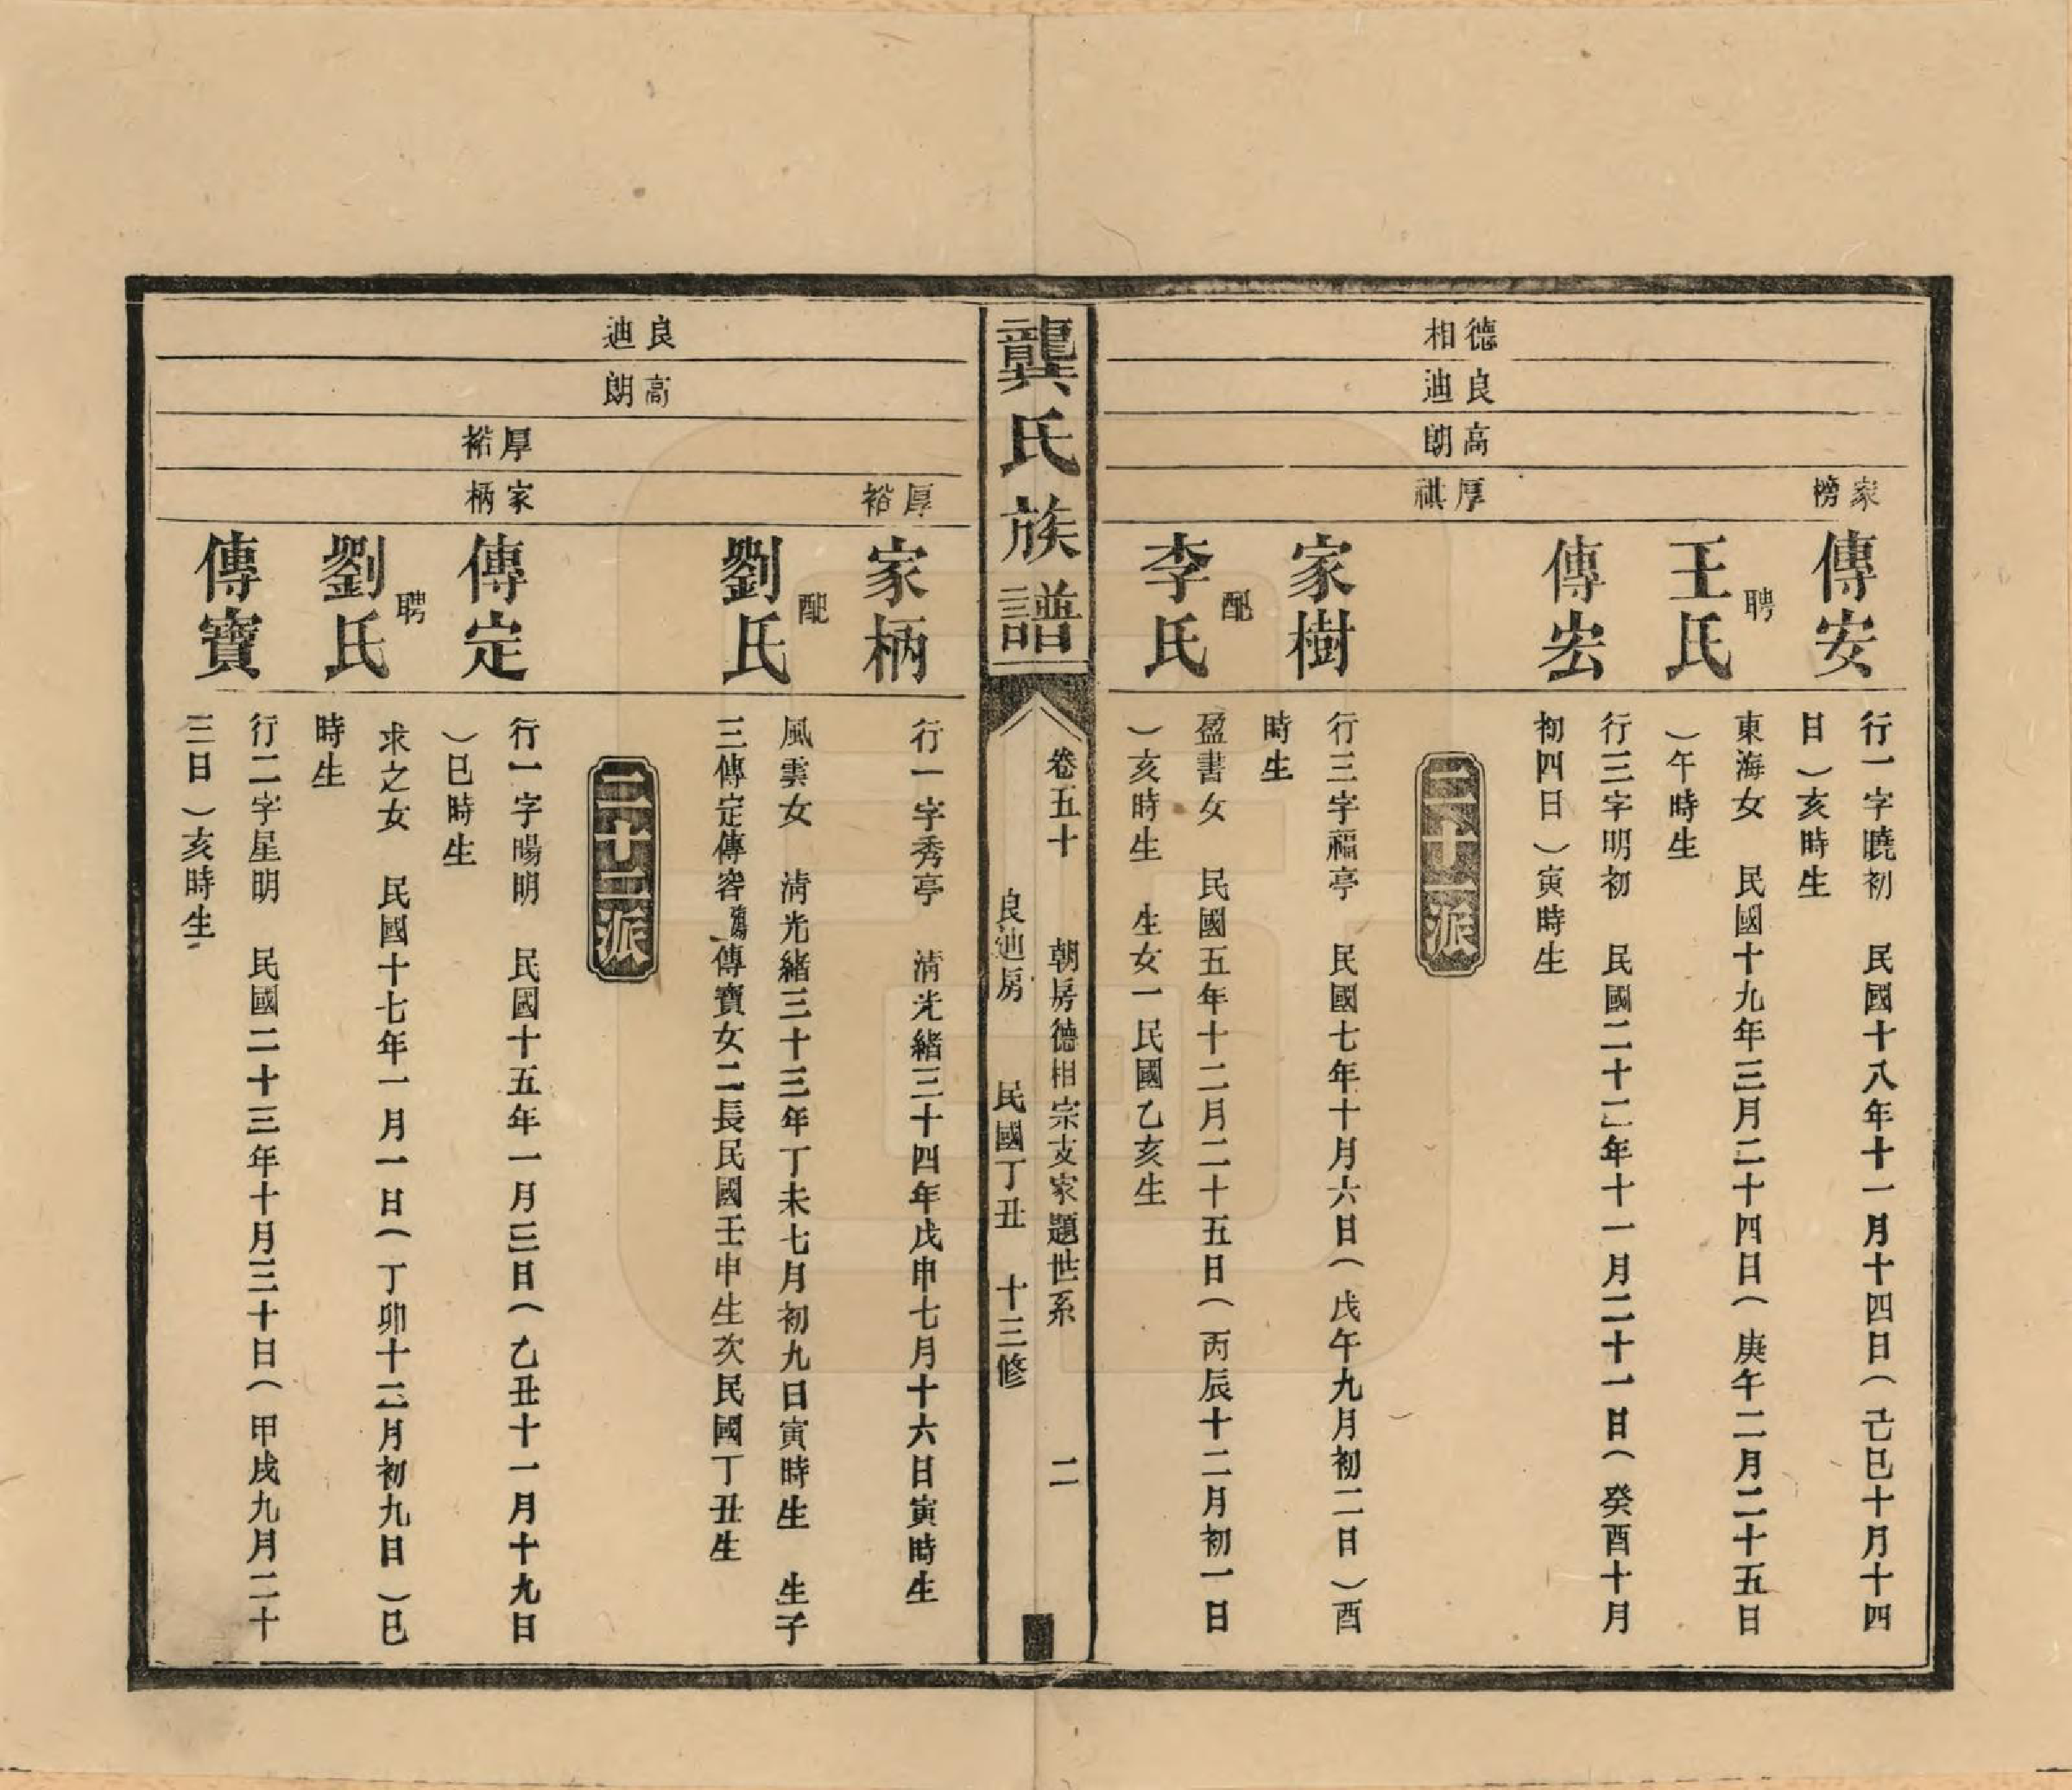 家榜
傳安
行一字曉初　民國十八年十一月十四日（己巳十月十四
日）亥時生
聘
王氏
東海女　民國十九年三月二十四日（庚午二月二十五日
）午時生
傳宏
行三字明初　民國二十二年十一月二十一日（癸酉十月
初四日）寅時生
德相
良迪
高朗
厚祺
二十一派
家樹
行三字福亭　民國七年十月六日（戊午九月初二日）酉
時生
配
李氏
盈書女　民國五年十二月二十五日（丙辰十二月初一日
）亥時生　生女一民國乙亥生
龔氏族譜
卷五十　朝房德相宗支家題世系　二
良迪房　民國丁丑　十三修
厚裕
家柄
行一字秀亭　清光緒三十四年戊申七月十六日寅時生
配
劉氏
風雲女　清光緒三十三年丁未七月初九日寅時生　生子
三傳定傳容傳寶女二長民國壬申生次民國丁丑生
良迪
高朗
厚裕
家柄
二十二派
傳定
行一字暘明　民國十五年一月三日（乙丑十一月十九日
）巳時生
聘
劉氏
求之女　民國十七年一月一日（丁卯十二月初九日）巳
時生
傳寶
行二字星明　民國二十三年十月三十日（甲戌九月二十
三日）亥時生